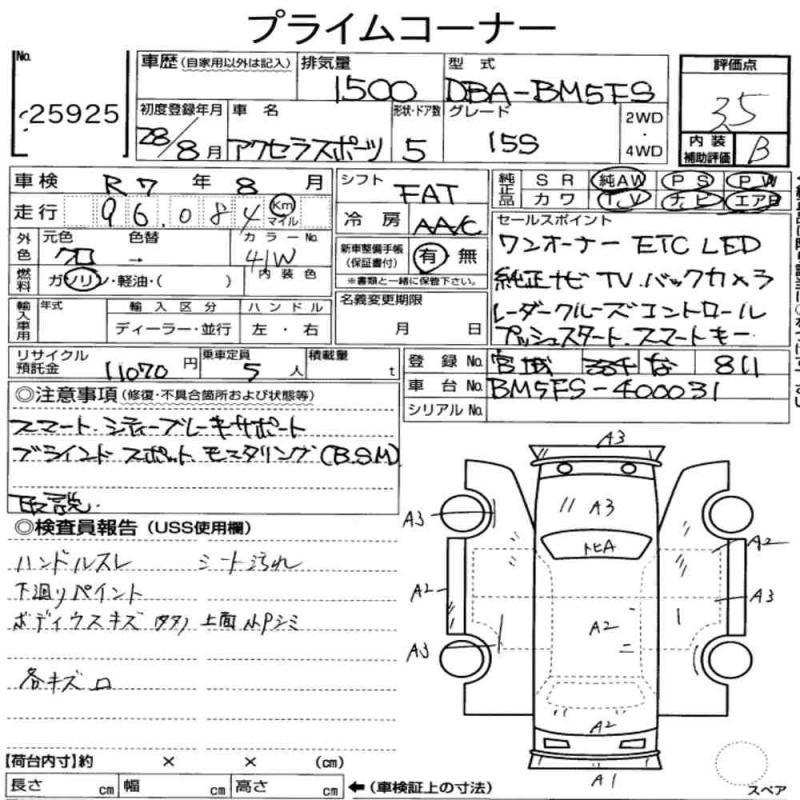 プライムコーナー
No. 25925
車歴 (自家用以外は記入) 排気量 1500 型式 DBA-BM5FS 評価点 3.5
初度登録年月 28/8月 車名 アクセラスポーツ 形状・ドア数 5 グレード 15S 2WD・4WD 内装補助評価 B
車検 R7年8月 シフト FAT 純正品 SR 純AW PS PW
走行 96,084 Km マイル 冷房 AAC カワ TV ナビ エアB
外色 元色 クロ 色替 → カラーNo. 41W 新車整備手帳(保証書付) 有 無 セールスポイント
燃料 ガソリン・軽油・( ) 内装色 ※書類と一緒に保管下さい。 ワンオーナー ETC LED
輸入車用 年式 輸入区分 ハンドル 名義変更期限 純正ナビ TV.バックカメラ
ディーラー・並行 左・右 月 日 レーダークルーズコントロール
プッシュスタート.スマートキー
リサイクル預託金 11070円 乗車定員 5人 積載量 t 登録No. 宮城 な 811
車台No. BM5FS-400031
シリアルNo.
◎注意事項 (修復・不具合箇所および状態等)
スマート.シティーブレーキサポート
ブラインド スポット モニタリング(BSM)
取説.
◎検査員報告 (USS使用欄)
ハンドルスレ シート汚れ
下廻りペイント
ボディウスキズ 上面小Pシミ
各キズ
A3
A3 A3
トヒA A2
A2 A3
A2
A3
A2
A1
【荷台内寸】約 × × (cm)
長さ cm 幅 cm 高さ cm ←(車検証上の寸法) スペア